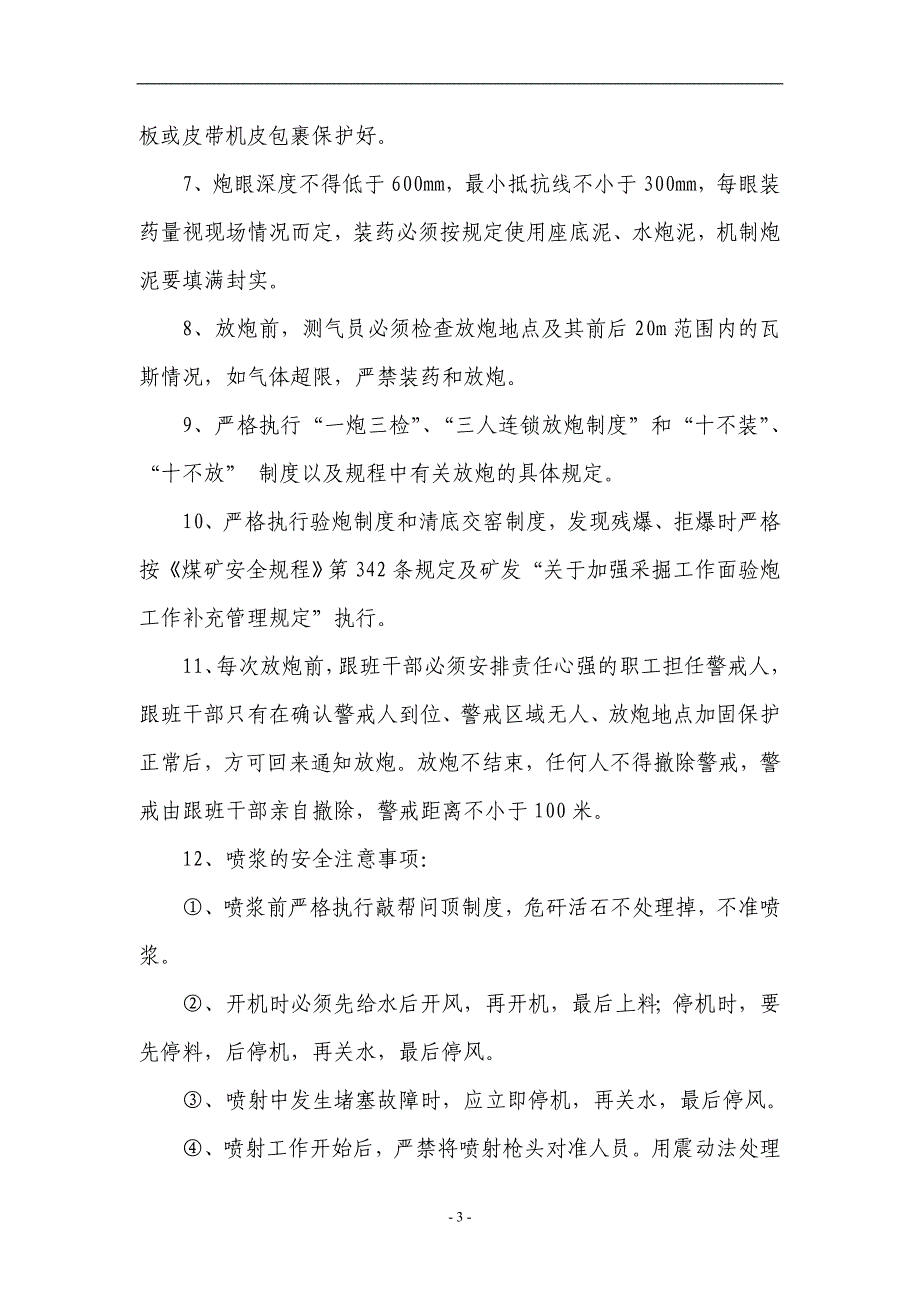 板或皮带机皮包裹保护好。
7、炮眼深度不得低于600mm，最小抵抗线不小于300mm，每眼装
药量视现场情况而定，装药必须按规定使用座底泥、水炮泥，机制炮
泥要填满封实。
8、放炮前，测气员必须检查放炮地点及其前后20m范围内的瓦
斯情况，如气体超限，严禁装药和放炮。
9、严格执行“一炮三检”、“三人连锁放炮制度”和“十不装”、
“十不放” 制度以及规程中有关放炮的具体规定。
10、严格执行验炮制度和清底交窑制度，发现残爆、拒爆时严格
按《煤矿安全规程》第342条规定及矿发“关于加强采掘工作面验炮
工作补充管理规定”执行。
11、每次放炮前，跟班干部必须安排责任心强的职工担任警戒人，
跟班干部只有在确认警戒人到位、警戒区域无人、放炮地点加固保护
正常后，方可回来通知放炮。放炮不结束，任何人不得撤除警戒，警
戒由跟班干部亲自撤除，警戒距离不小于100米。
12、喷浆的安全注意事项：
①、喷浆前严格执行敲帮问顶制度，危矸活石不处理掉，不准喷
浆。
②、开机时必须先给水后开风，再开机，最后上料；停机时，要
先停料，后停机，再关水，最后停风。
③、喷射中发生堵塞故障时，应立即停机，再关水，最后停风。
④、喷射工作开始后，严禁将喷射枪头对准人员。用震动法处理
- 3 -